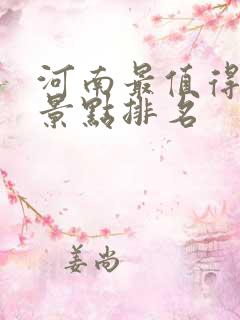 河南最值得
景點排名
姜尚